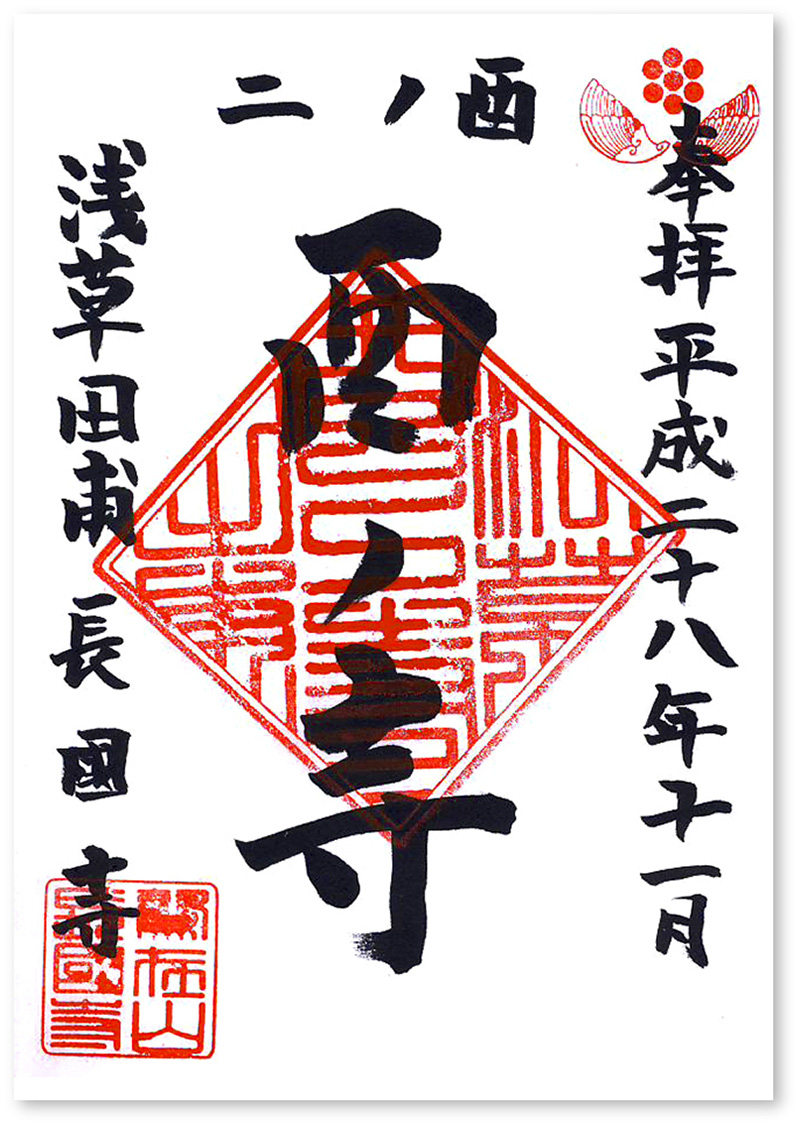 奉拝平成二十八年十一月
二ノ酉
酉ノ寺
浅草田甫 長國寺
鷲在山
長國寺